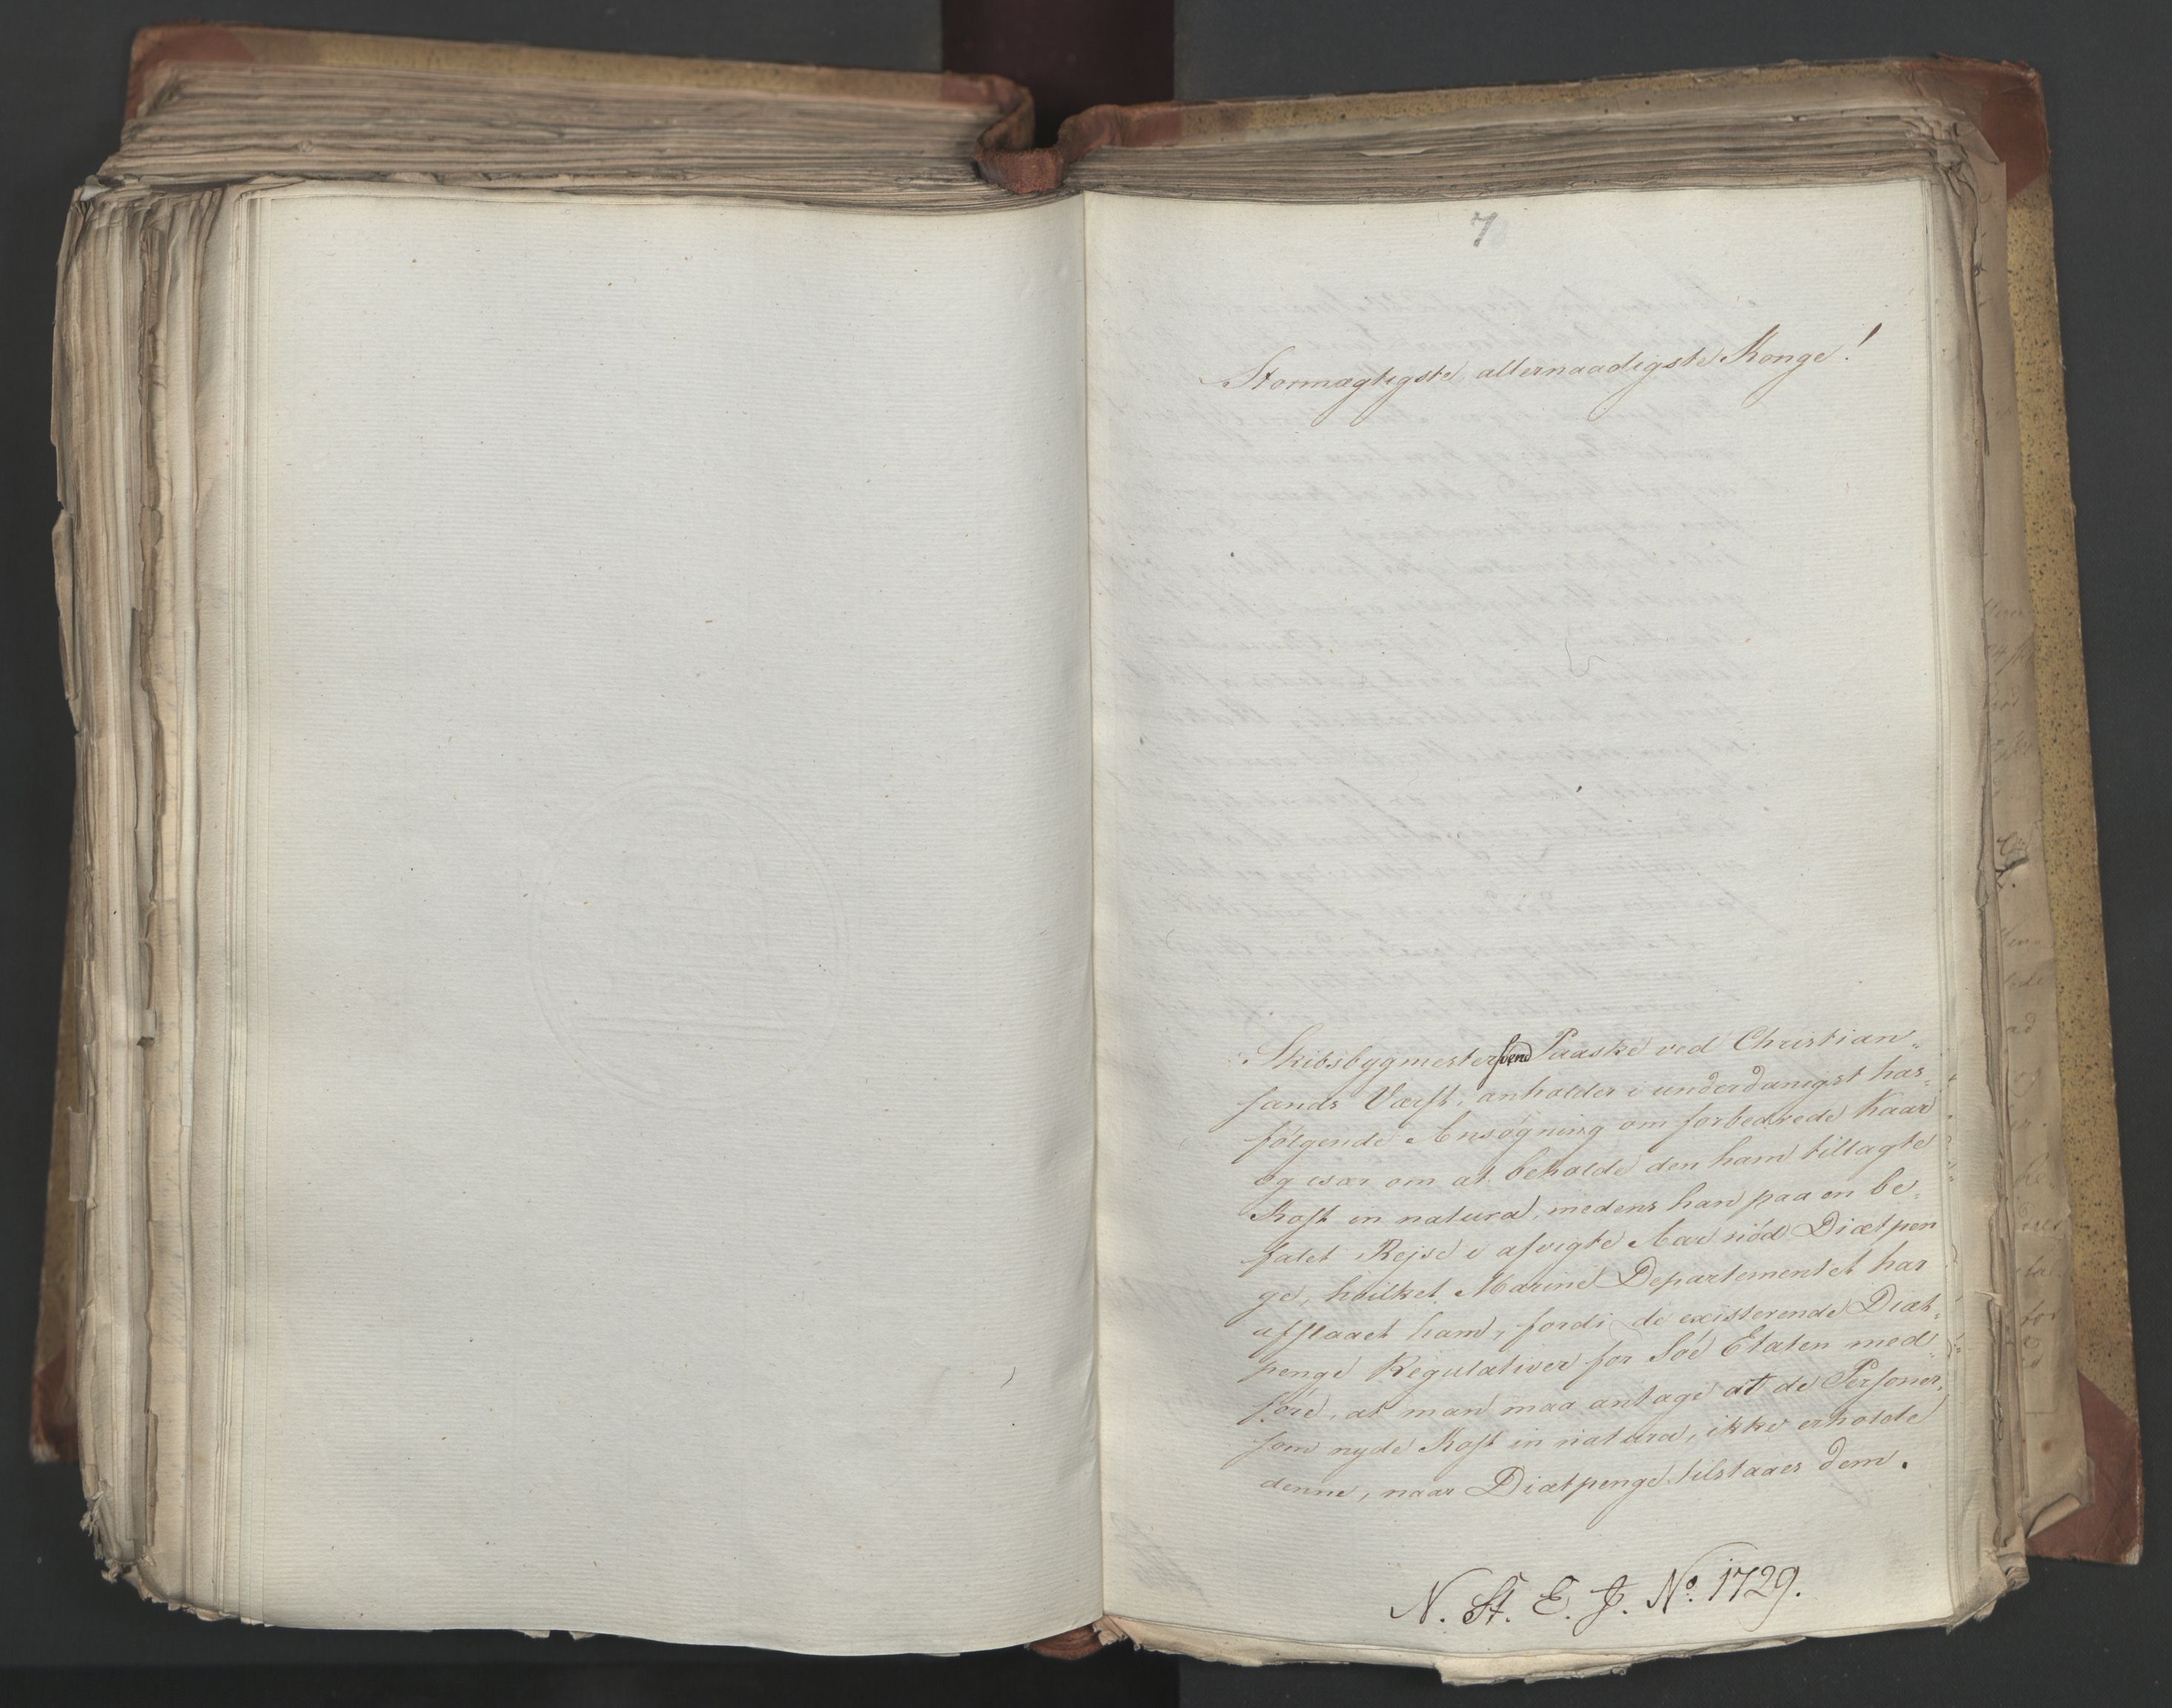 7
Stormægtigste allernaadigste Konge!
Skibsbygmestersvend Paaske ved Christian-
sands Værft, anholder i underdanigst hos-
følgende Ansøgning om forbedrede Kaar
og især om at beholde den ham tillagte
Kost in natura, medens han paa en be-
falet Rejse i afvigte Aar niød Diætpen
ge, hvilket Marine Departementet har
afslaaet ham, fordi de existerende Diæt-
penge Regulativer for Søe Etaten med-
føre, at man maa antage at de Personer,
som nyde Kost in natura, ikke erholde
denne, naar Diætpenge tilstaaes dem.
N. St. E. J. No. 1729.